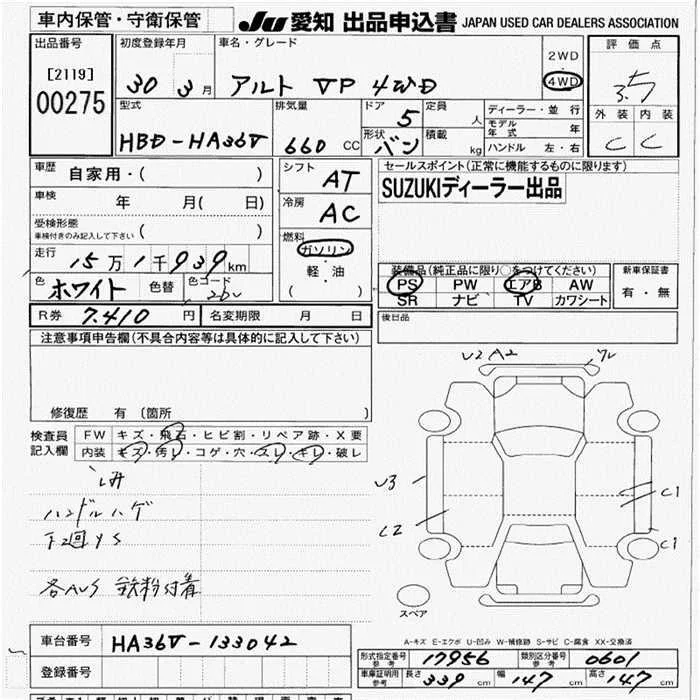 車内保管・守衛保管
JU 愛知 出品申込書 JAPAN USED CAR DEALERS ASSOCIATION
出品番号 初度登録年月 車名・グレード 評価点
[2119]
00275
30 3月 アルト VP 4WD 2WD・4WD 3.5
外装 内装
C C
型式 排気量 ドア 定員 人 ディーラー・並行
HBD-HA36V 660 CC 5 モデル年式 年
形状 バン 積載 kg ハンドル 左・右
車歴 自家用・( )
シフト AT
セールスポイント(正常に機能するものに限ります)
SUZUKIディーラー出品
車検 年 月( 日)
冷房 AC
受検形態
車検付きのみ記入して下さい ( )
燃料
ガソリン
軽・油
( )
走行 15万1千939km
装備品(純正品に限り○をつけてください) 新車保証書
PS PW エアB AW 有・無
SR ナビ TV カワシート
色 ホワイト 色替 色コード 26U
R券 7.410円 名変期限 月 日
後日品
注意事項申告欄(不具合内容等は具体的に記入して下さい)
修復歴 有(箇所 )
検査員記入欄 FW キズ・飛石・ヒビ割・リペア跡・X要
内装 キズ・汚レ・コゲ・穴・スレ・キレ・破レ
ハンドルハゲ
下回りS
各AUS 鉄粉付着
U2 A2
U3
C2
C1
C1
スペア
A-キズ E-エクボ U-凹み W-補修跡 S-サビ C-腐食 XX-交換済
車台番号 HA36V-133042
登録番号
形式指定番号 参考 17956 類別区分番号 参考 0601
車庫証明用 参考 長さ 339cm 幅 147cm 高さ 147cm